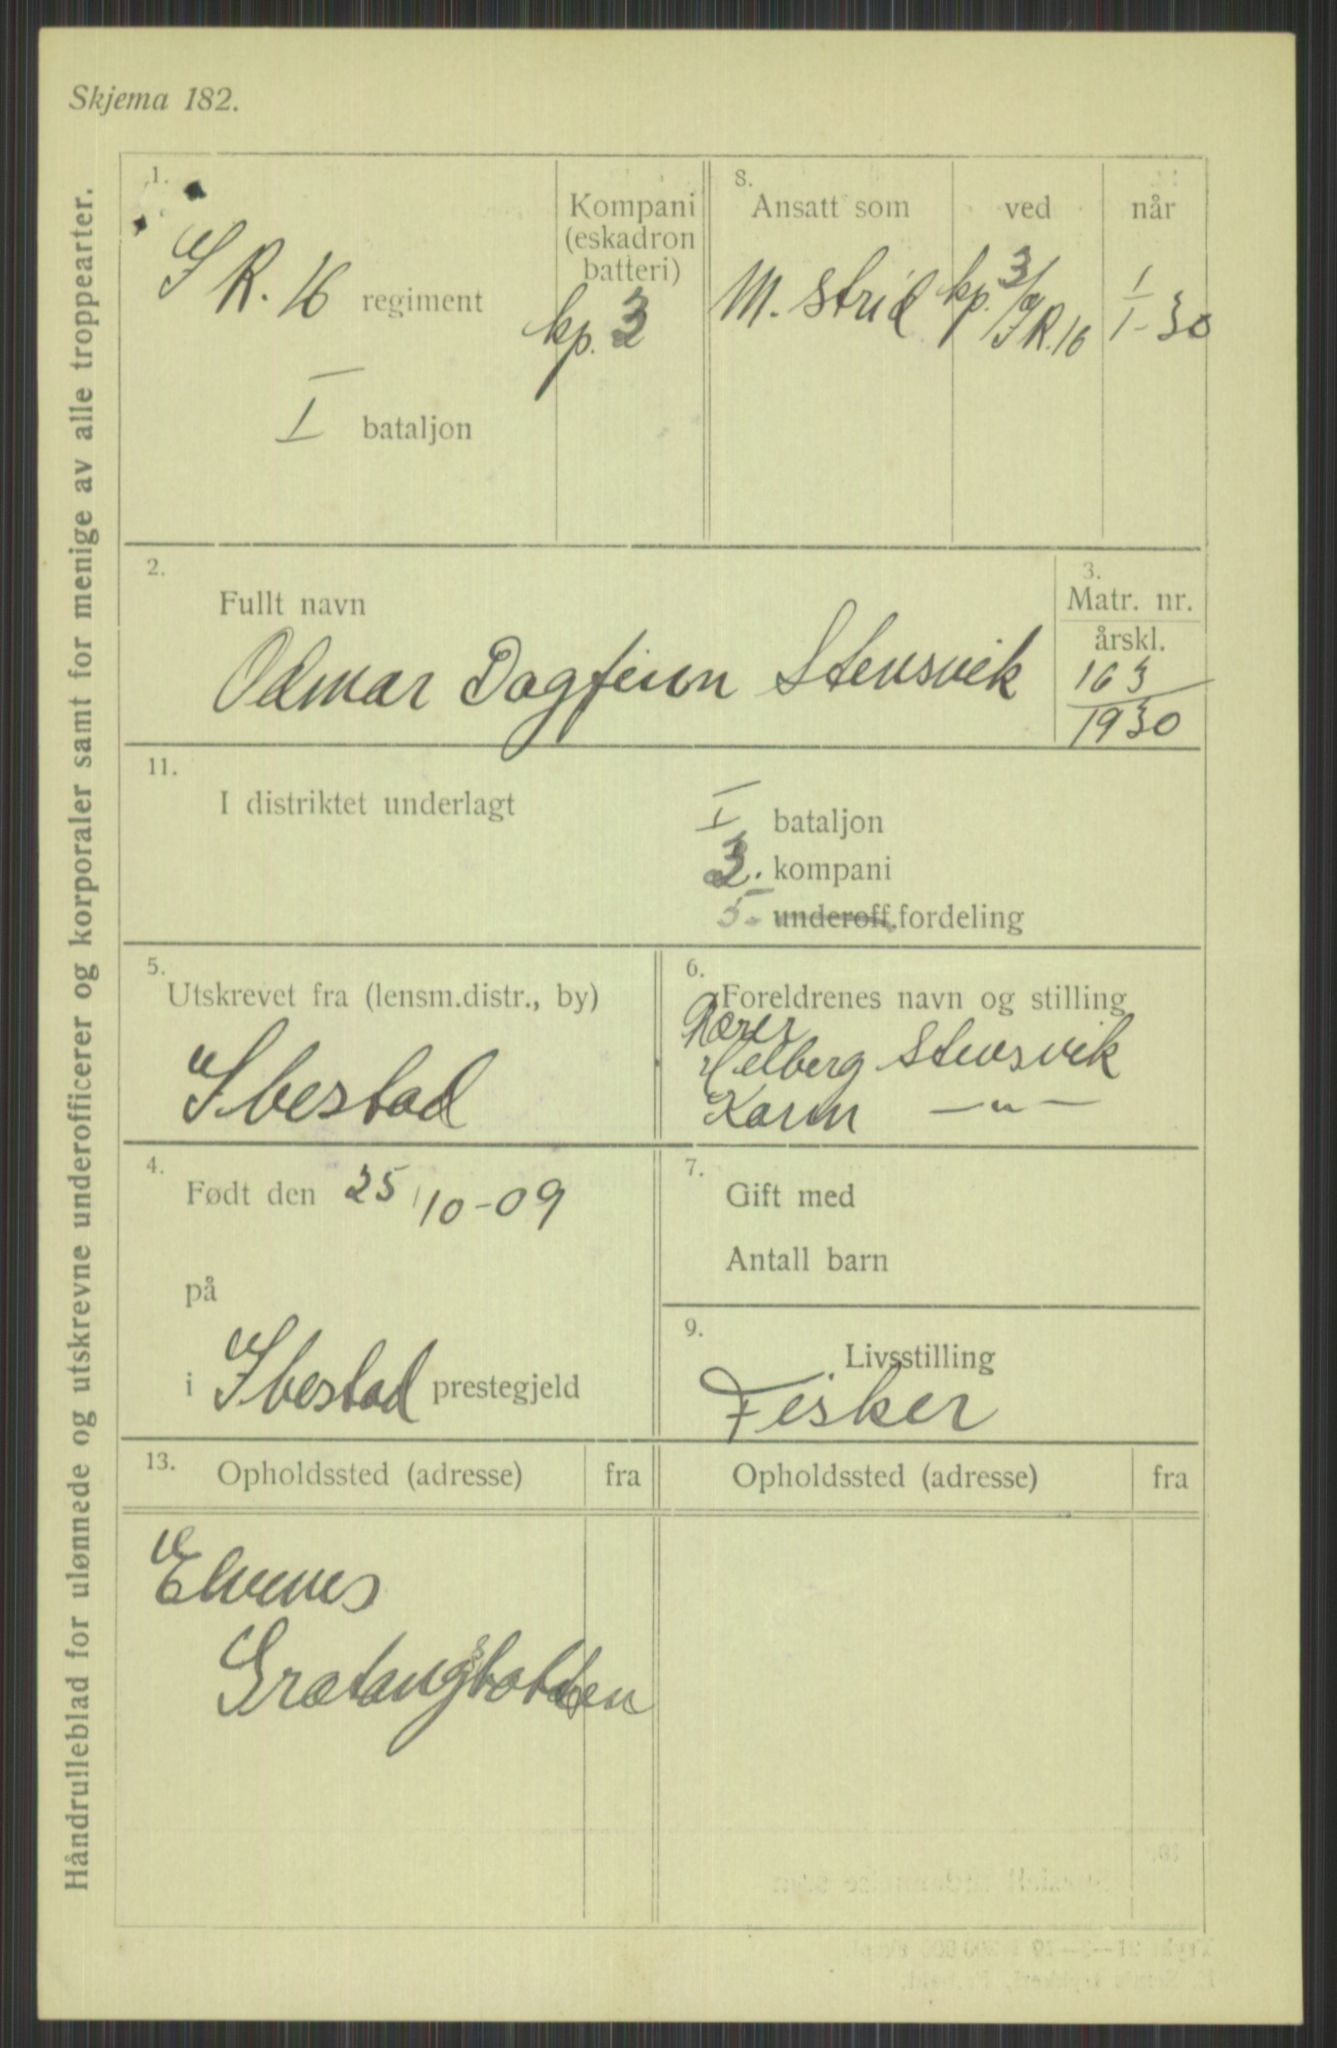 Skjema 182.
Håndrulleblad for ulønnede og utskrevne underofficerer og korporaler samt for menige av alle troppearter.
1.
I R. 16 regiment
I bataljon
Kompani
(eskadron
batteri)
kp. 3
8.
Ansatt som ved når
M. strid kp. 3/IR.16 1/1-30
2.
Fullt navn
Odmar Dagfinn Stensvik
3.
Matr. nr.
årskl.
163
1930
11.
I distriktet underlagt
I bataljon
3. kompani
5- underoff.fordeling
5.
Utskrevet fra (lensm.distr., by)
Ibestad
6.
Foreldrenes navn og stilling
Helberg Stensvik
Karin —"—
4.
Født den 25/10-09
på
i Ibestad prestegjeld
7.
Gift med
Antall barn
9.
Livsstilling
Fisker
13.
Opholdssted (adresse) fra Opholdssted (adresse) fra
Elvenes
Gratangsbotten